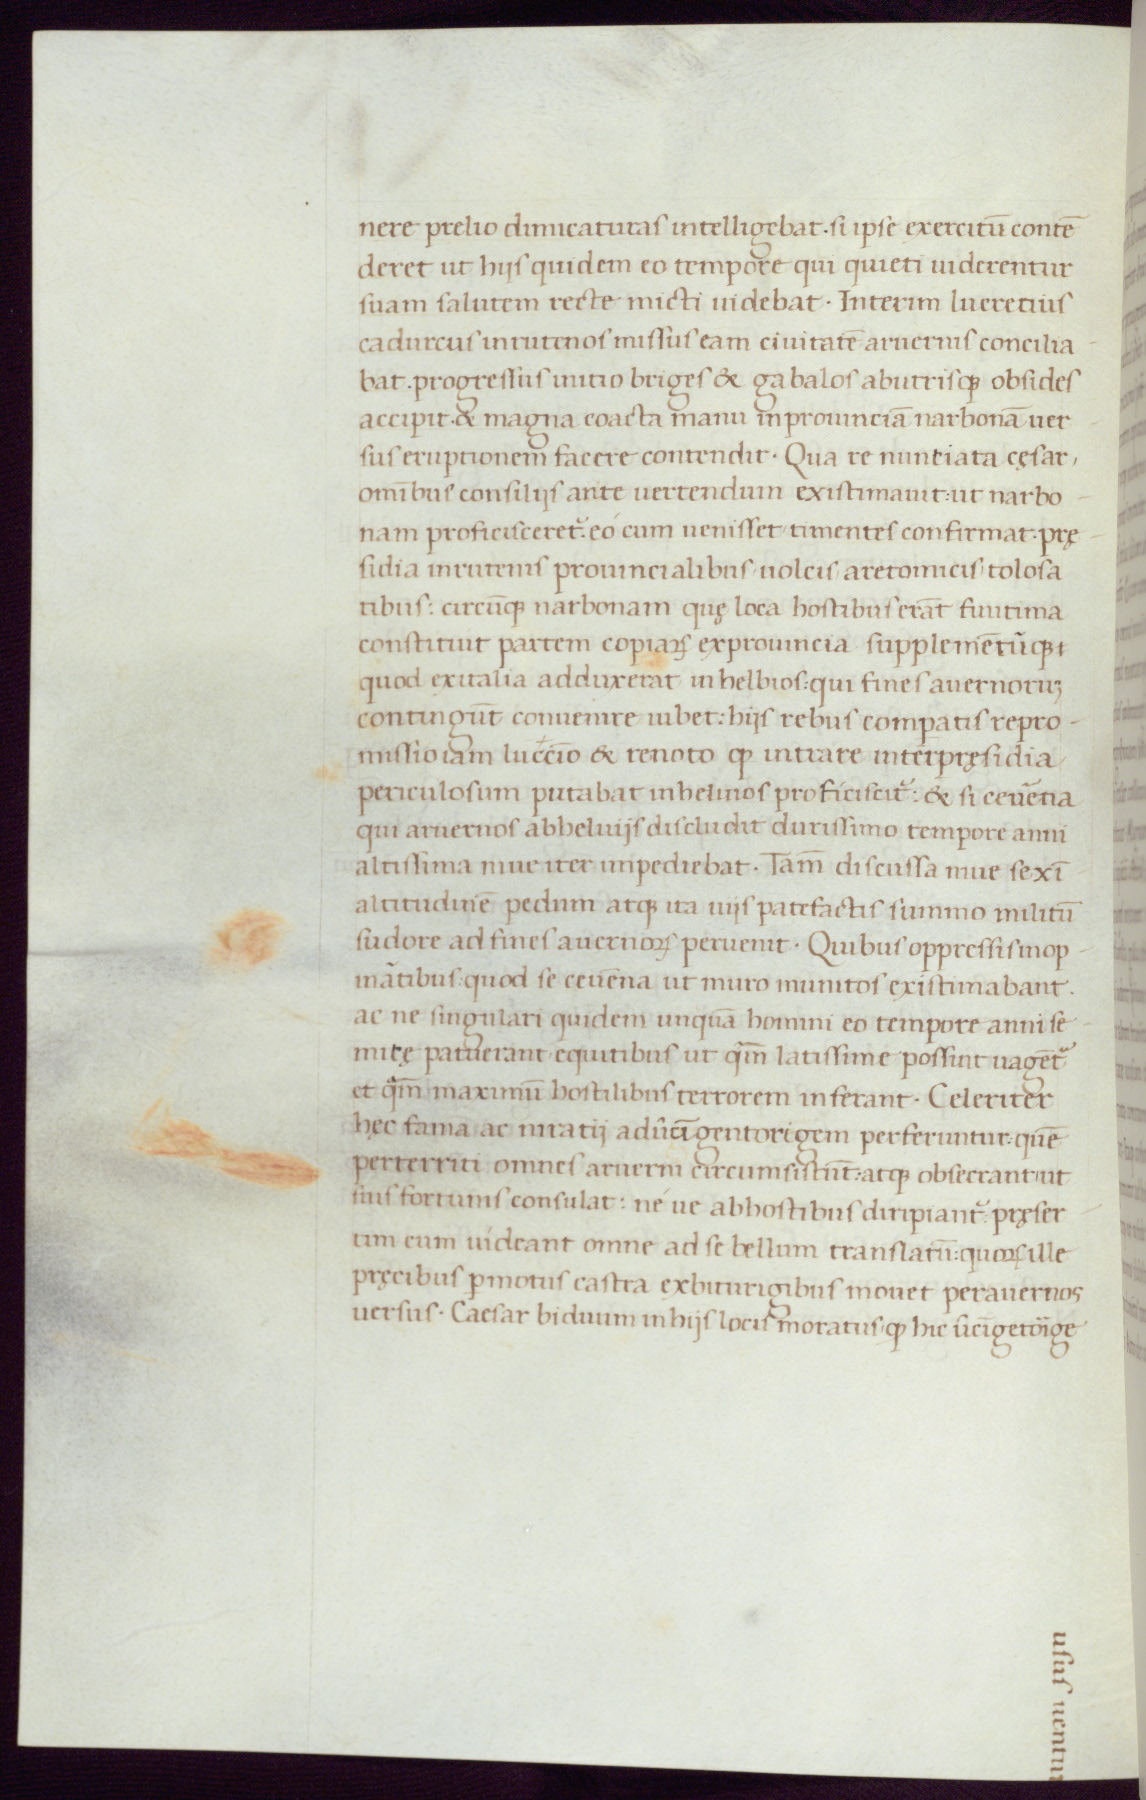 nere prelio dimicaturas intelligebat · si ipse exercitū contē
deret ut hijs quidem eo tempore qui quieti uiderentur
suam salutem recte micti uidebat · Interim lueretius
cadurcus inrutenos missus eam ciuitatē aruernis concilia
bat · progressus initio briges & gabalos abutrisqꝫ obsides
accipit · & magna coacta manu inprouinciā narbonā uer
sus eruptionem facere contendit · Qua re nuntiata cęsar,
omībus consilijs ante uertendum existimauit: ut narbo
nam proficisceret᷑. eó cum uenisset timentes confirmat · prę
sidia inrutenis prouincialibus uolcis aretomicis tolosa
tibus: circūqꝫ narbonam quę loca hostibus erāt finitima
constituit partem copiaꝝ exprouincia supplemētūqꝫ
quod exitalia adduxerat inhelbios: qui fines auernoruꝫ
contingūt conuenire iubet: hijs rebus comparatis repro
missio iam luccīo & remoto qꝫ intrare interpręsidia
periculosum putabat inheluios proficiscit᷑: & si ceuētia
qui aruernos abheluijs discludit durissimo tempore anni
altissima niue iter impediebat · Tam̄ discussa niue sexī
altitudinē pedum atqꝫ ita uijs patefactis summo militū
sudore ad fines auernoꝝ peruenit · Quibus oppressis inop
inātibus: quod se ceuēna ut muro munitos existimabant ·
ac ne singulari quidem unquā homini eo tempore anni se
mitę patuerant equitibus ut qm̄ latissime possint uagēt᷑
et qm̄ maximū hostilibus terrorem inferant · Celeriter
hęc fama ac niratij adūcīgentorigem perferuntur: quē
perterriti omnes aruerni circumsistūt: atqꝫ obsecrant ut
suis fortunis consulat: né ue abhostibus diripiant᷑: pręser
tim cum uideant omne ad se bellum translatū: quoꝝ ille
pręcibus ꝑmotus castra exbiturigibus mouet perauernos
uersus · Caesar biduum inhijs locis moratus qꝫ hic ūcīgetōige
usius uentur